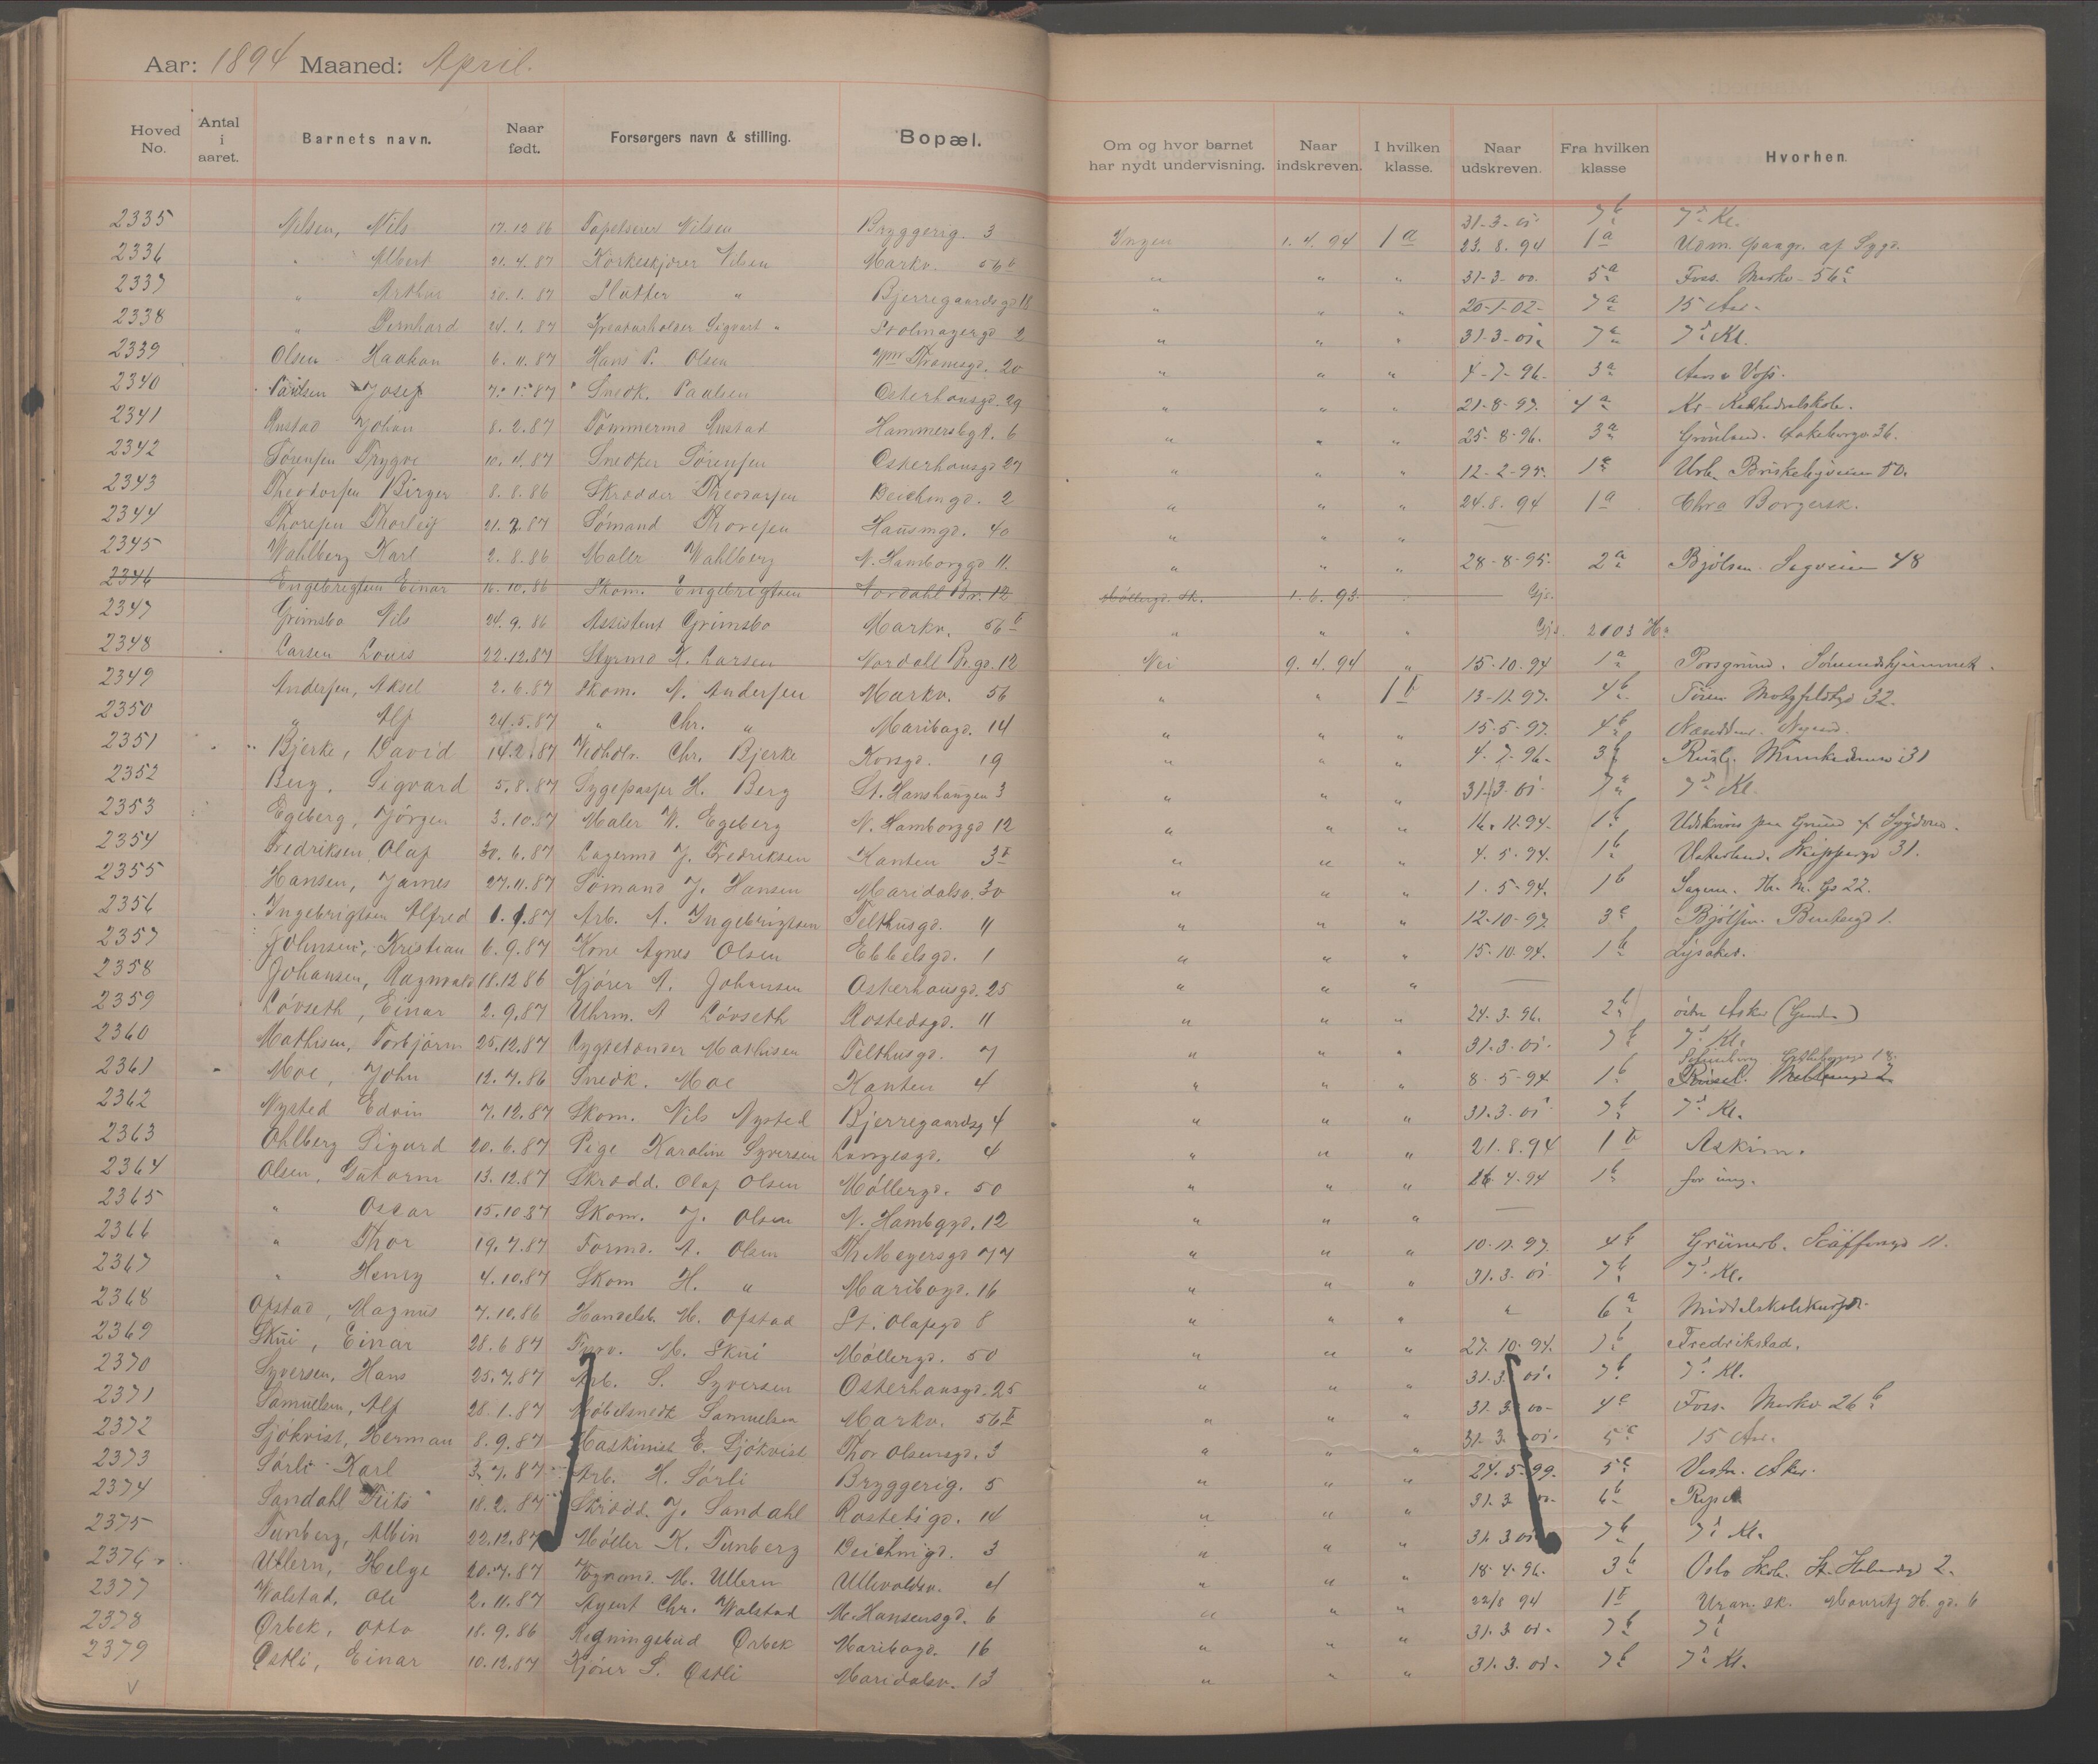 Aar: 1894 Maaned: April.
Hoved No. Antal i aaret. Barnets navn. Naar født. Forsørgers navn & stilling. Bopæl. Om og hvor barnet har nydt undervisning. Naar indskreven. I hvilken klasse. Naar udskreven. Fra hvilken klasse Hvorhen.
2335 Nilsen, Nils 17.12 86 Tapetserer Nilsen Bryggerig. 3 Ingen 1.4.94 1a 31-3-01 7b 7d Kl.
2336 " Albert 21.4.87 Nilsen Markv. 56b " " " 23.8.94 1a Udm. af Sygd.
2337 " Arthur 20.1.87 Slatter " Bjerregaardsgd 18 " " " 31-3-00. 5a Foss. Markv-56c
2338 " Bernhard 24.1.87 Sigvart " 2 " " " 20-1-02- 7a 15 Aar.
2339 Olsen Haakon 6.11.87 Hans P. Olsen Thranesgd. 20 " " " 31-3-01 7a 7d Kl.
2340 Paulsen Josef 7.1.87 Snedk. Paulsen Osterhausgd. 29 " " " 4-7-96- 3a Voss.
2341 Rustad Johan 8.2.87 Tømmermd Rustad Hammersbgd. 6 " " " 21-8-97. 4a Kr. Kathedralskole.
2342 Sørensen Trygve 10.4.87 Snedker Sørensen Osterhausgd 27 " " " 25-8-96. 3a Grønland. Aakebergv 36.
2343 Theodorsen Birger 8.8.86 Skrædder Theodorsen Beichmgd. 2 " " " 12-2-95. 1a Urb. Briskebyveien 50.
2344 Thoresen Thorleif 21.2.87 Sømand Thoresen Hausmgd. 40 " " " 24.8.94 1a Chra Borgersk.
2345 Wahlberg Karl 2.8.86 Maler Wahlberg N. Hamborggd 11. " " " 28-8-95- 2a Bjølsen. Sagveien 48
2346 Engebrigtsen Einar 16.10.86 Skom. Engebrigtsen Nordahl Br. 12 Møllergd. Sk. 1.6.93. Gjs.
2347 Grimsbo Nils 24.9.86 Assistent Grimsbo Markv. 56b " " " Gjs. 2103 H
2348 Larsen Louis 22.12.87 Styrmd K. Larsen Nordall Br.gd. 12 Nei 9.4.94 " 15-10-94 1a Porsgrund. Sømandshjemmet.
2349 Andersen, Aksel 2.6.87 Skom. N. Andersen Markv. 56 " " 1b 13-11-97. 4b Tøien Motzfeldtgd 32.
2350 " Alf 24.5.87 " Chr. " Maribogd. 14 " " " 15-5-97. 4b
2351 Bjerke, David 14.2.87 Vedholr. Chr. Bjerke Korsgd. 19 " " " 4-7-96- 3b Rusl. Munkedamsv 31
2352 Berg, Sigvard 5.8.87 Sygepasser H. Berg St. Hanshaugen 3 " " " 31-3-01- 7a 7d Kl.
2353 Egeberg, Jørgen 3.10.87 Maler W. Egeberg N. Hamborggd 12 " " " 16.11.94. 1b Udskreves paa Grund af Sygdom.
2354 Fredriksen, Olaf 30.6.87 Lagermd J. Fredriksen Kanten 3b " " " 4-5-94. 1b Vaterland. Skippergd 31.
2355 Hansen, James 27.11.87 Sømand J. Hansen Maridalsv. 30 " " " 1-5-94. 1b Sagene. Th. M. Gs 22.
2356 Ingebrigtsen Alfred 1.1.87 Arb. A. Ingebrigtsen Telthusgd. 11 " " " 12-10-97. 3c Bjølsen. Bentsegd 1.
2357 Johnsen, Kristian 6.9.87 Kone Agnes Olsen Ebbelsgd. 1 " " " 15-10-94. 1b Lysaker.
2358 Johansen, Ragnvald 18.12 86 Kjører A. Johansen Osterhausgd. 25 " " " —
2359 Løvseth, Einar 2.9.87 Uhrm. A Løvseth Rostedsgd. 11 " " " 24.3.96. 2b Asker
2360 Mathisen, Torbjørn 25.12.87 Lygtetænder Mathisen Telthusgd. 7 " " " 31.3.01- 7b 7d Kl.
2361 Moe, John 12.7.86 Snedk. Moe Kanten 4 " " " 8-5-94 1b
2362 Nysted Edvin 7.12.87 Skom. Nils Nysted Bjerregaardsg 4 " " " 31.3.01 7b 7d Kl.
2363 Ohlberg Sigurd 20.6.87 Pige Karoline Syversen Langesgd. 4 " " " 21.8.94 1b Askim.
2364 Olsen, Gutorm 13.12.87 Skrædd. Olaf Olsen Møllergd. 50 " " " 26.4.94 1b for ung.
2365 " Oscar 15.10.87 Skom. J. Olsen N. Hambgd. 12 " " " —
2366 " Thor 19.7.87 Formd. A. Olsen Th. Meyersgd 77 " " " 10-11-97. 4b Grünerl. 11.
2367 " Henry 4.10.87 Skom H. " Maribogd. 16 " " " 31.3.01 7b 7d Kl.
2368 Opstad, Magnus 7.10.86 Handelsb. M. Opstad St. Olafsgd 8 " " " " 6a Middelskolekurser.
2369 Skui, Einar 28.6 87 M. Skui Møllergd. 50 " " " 27.10.94. 1b Fredrikstad.
2370 Syversen, Hans 25.7.87 Arb. S. Syversen Osterhausgd. 25 " " " 31.3 01. 7b 7d Kl.
2371 Samuelsen, Alf 28.1.87 Møbelsnedk Samuelsen Markv. 56b " " " 31.3 00- 4c Foss. Markv 26b
2372 Sjökvist, Herman 8.9.87 Maskinist E. Sjökvist Thor Olsensgd. 3 " " " 31.3.01. 5c 15 Aar.
2373 Sørli Karl 3.7.87 Arb. H. Sørli Bryggerig. 5 " " " 24.5.99. 5c Vestre Aker.
2374 Sandahl Frits 18.2.87 Skrædd. J. Sandahl Rostedsgd. 14 " " " 31.3 00- 6b
2375 Tunberg, Albin 22.12.87 Møller K. Tunberg Beichmgd. 3 " " " 31.3 01 7b 7d Kl.
2376 Ullern, Helge 20.7.87 M. Ullern Ullevoldsv. 4 " " " 18.4.96. 3b Oslo Skole. St. Halvardsgd 2.
2377 Walstad, Ole 2.11.87 Agent Chr. Walstad M. Hansensgd. 6 " " " 22/8 94 1b Uran. sk. Mouritz H. gd. 6
2378 Ørbek, Otto 18.9.86 Regningsbud Ørbek Maribogd. 16 " " " 31.3 01- 7b 7d
2379 Østli, Einar 10.12.87 Kjører S. Østli Maridalsv. 13 " " " 31.3.01- 7b 7d Kl.